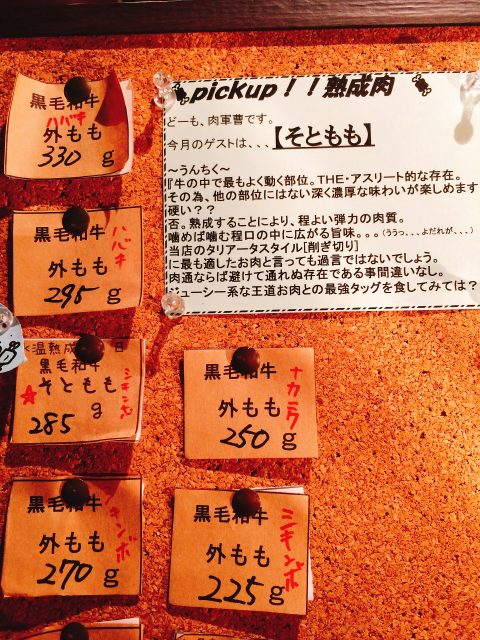 pickup!!熟成肉
どーも、肉軍曹です。
今月のゲストは、、、【そともも】
～うんちく～
『牛の中で最もよく動く部位。THE・アスリート的な存在。
その為、他の部位にはない深く濃厚な味わいが楽しめます
硬い??
否。熟成することにより、程よい弾力の肉質。
噛めば噛む程口の中に広がる旨味。。。(ううっ、、、よだれが、、、)
当店のタリアータスタイル[削ぎ切り]
に最も適したお肉と言っても過言ではないでしょう。
肉通ならば避けて通れぬ存在である事間違いなし。
ジューシー系な王道お肉との最強タッグを食してみては?
黒毛和牛
ハバキ
外もも
330 g
黒毛和牛
ハバキ
外もも
295 g
温熟成 日
黒毛和牛
シキンボ
☆そともも
285 g
黒毛和牛
ナカニク
外もも
250 g
黒毛和牛
キンボ
外もも
270 g
黒毛和牛
シキンボ
外もも
225 g